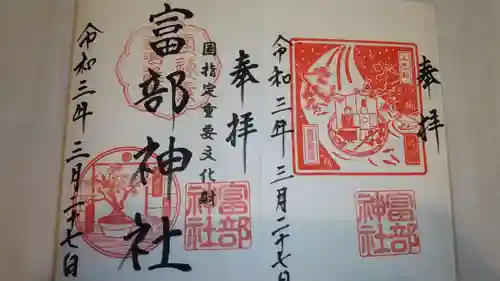 奉拝
令和三年 三月二十七日
富部神社
奉拝
国指定重要文化財
富部神社
富部神社
令和三年 三月二十七日